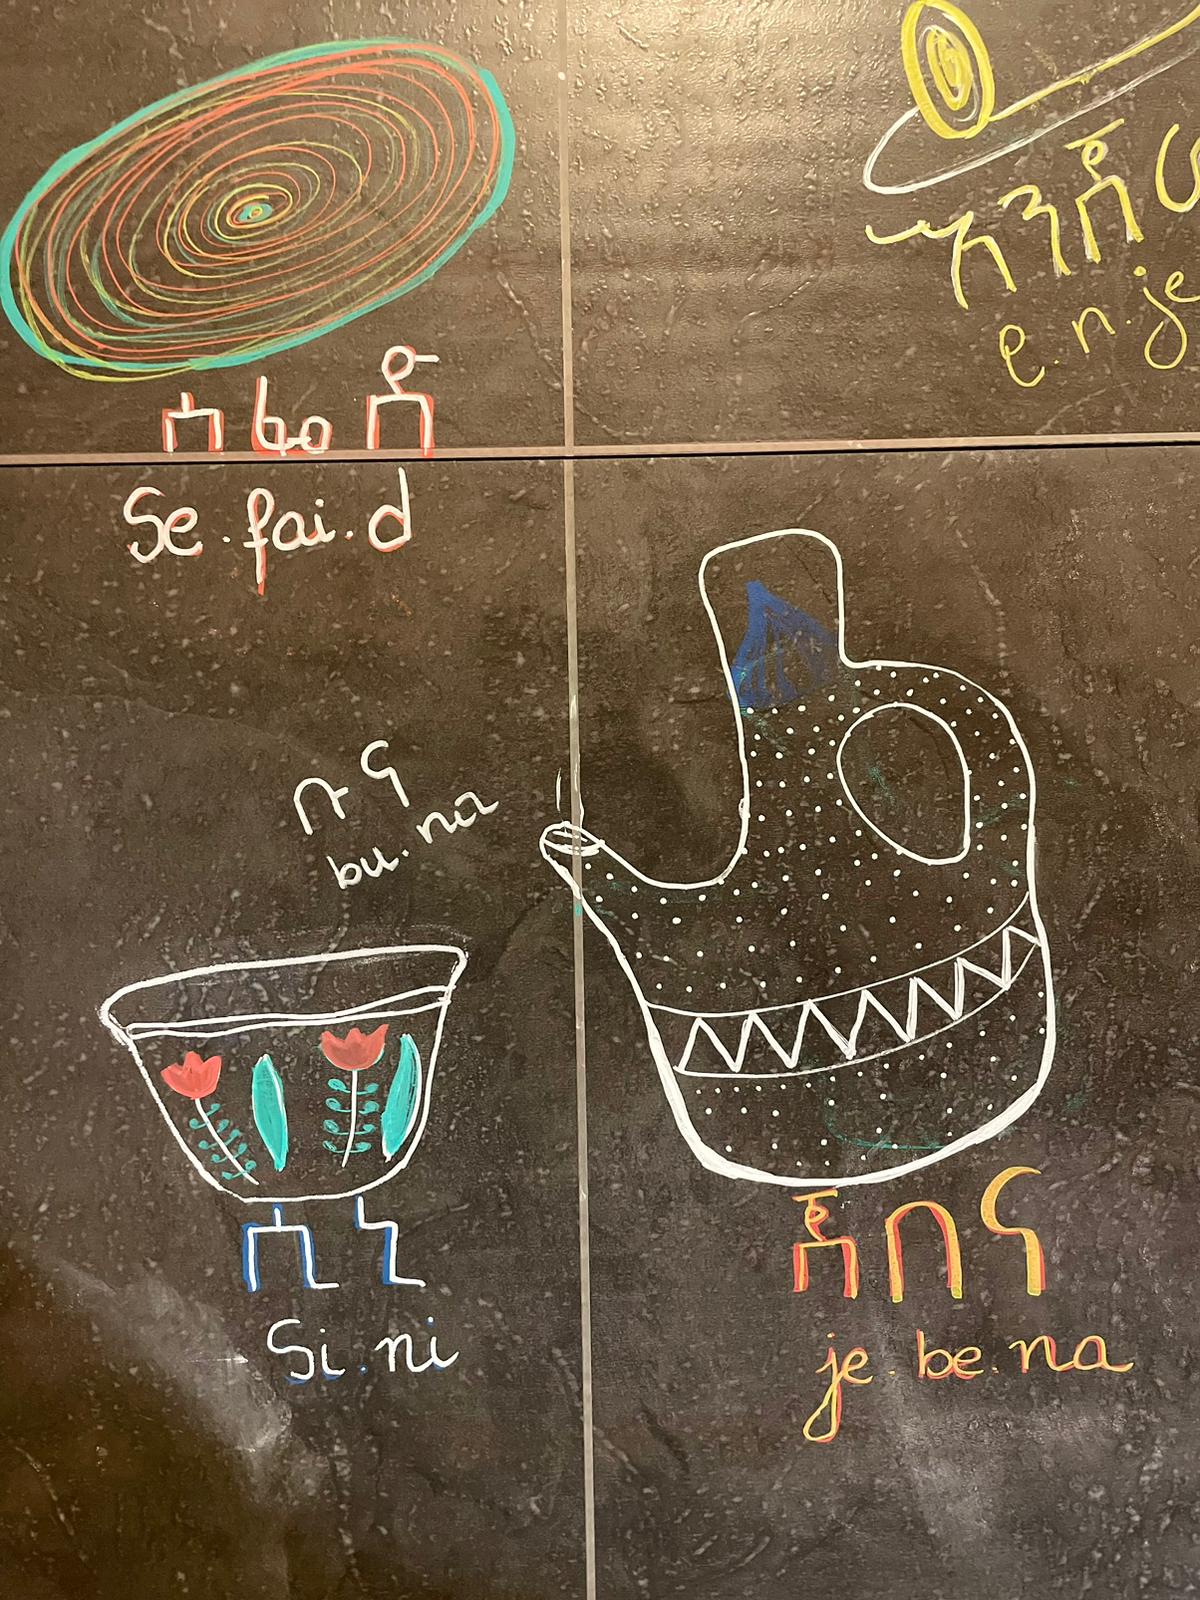 እንጀ
e.n.je
ሰፌድ
Se.fai.d
ቡና
bu.na
ሲኒ
Si.ni
ጀበና
je.be.na